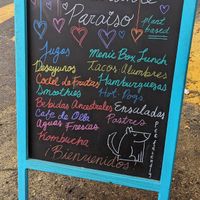 Paraiso
plant based
Jugos
Menú Box Lunch
Desayunos
Tacos Alambres
Coctel de Frutas
Hamburguesas
Smoothies
Hot-Dogs
Bebidas Ancestrales
Ensaladas
Cafe de Olla
Postres
Aguas Frescas
Kombucha
Bienvenidos